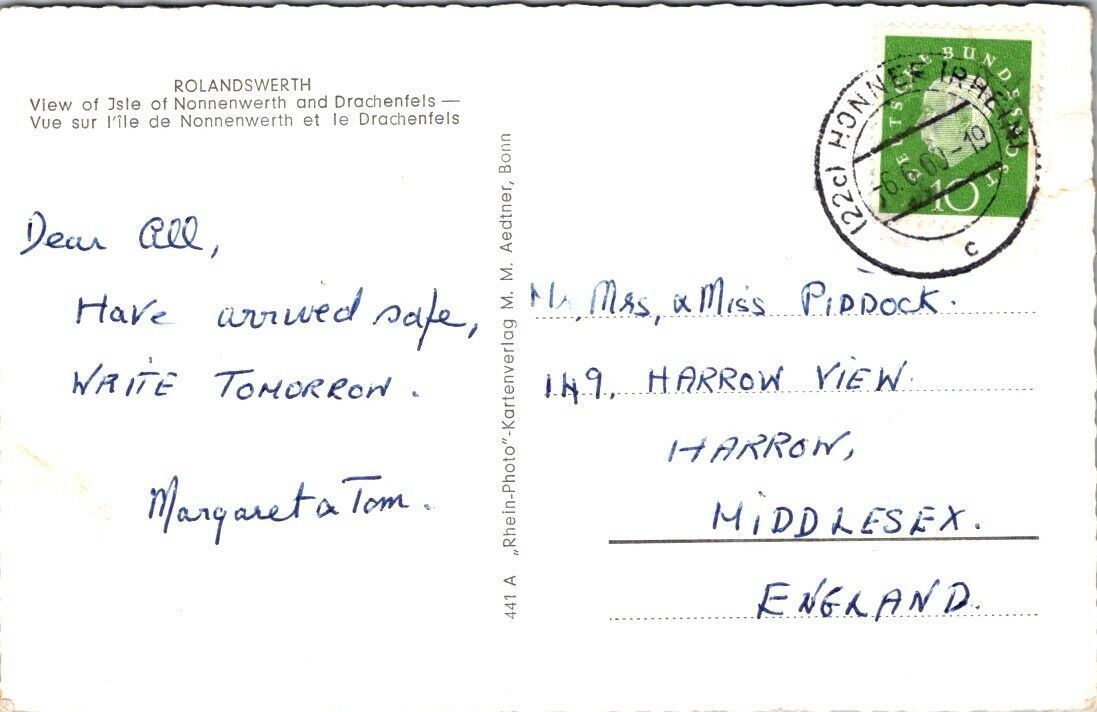 ROLANDSWERTH
View of Jsle of Nonnenwerth and Drachenfels —
Vue sur l'île de Nonnenwerth et le Drachenfels
Dear All,
Have arrived safe,
WRITE TOMORROW.
Margaret & Tom.
441 A „Rhein-Photo"-Kartenverlag M. M. Aedtner, Bonn
DEUTSCHE BUNDESPOST
10
(22c) HONNEF (RHEIN)
-6.6.60-19
c
Mr, Mrs, & Miss PIDDOCK.
149, HARROW VIEW.
HARROW,
MIDDLESEX.
ENGLAND.